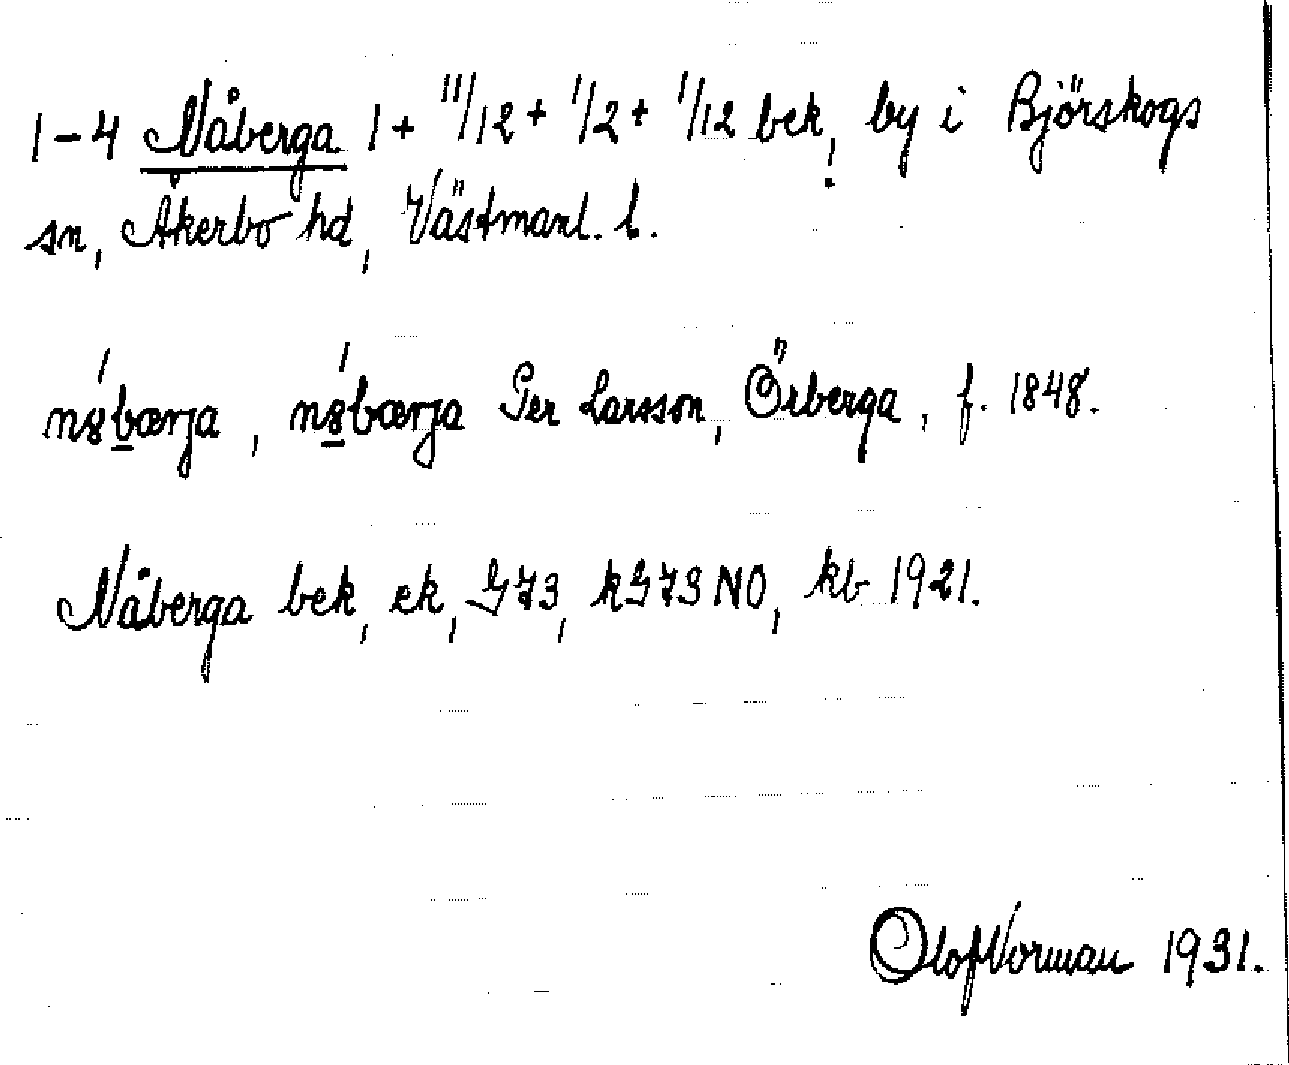 1-4 Nåberga 1 + 11/12 + 1/2 + 1/12 bek, by i Björskogs
sn, Åkerbo hd, Västmanl. l.
n8́bærja, n8́bærja Per Larsson, Örberga, f. 1848.
Nåberga bek, ek, G73, kG73 NO, kb 1921.
Olof Norman 1931.